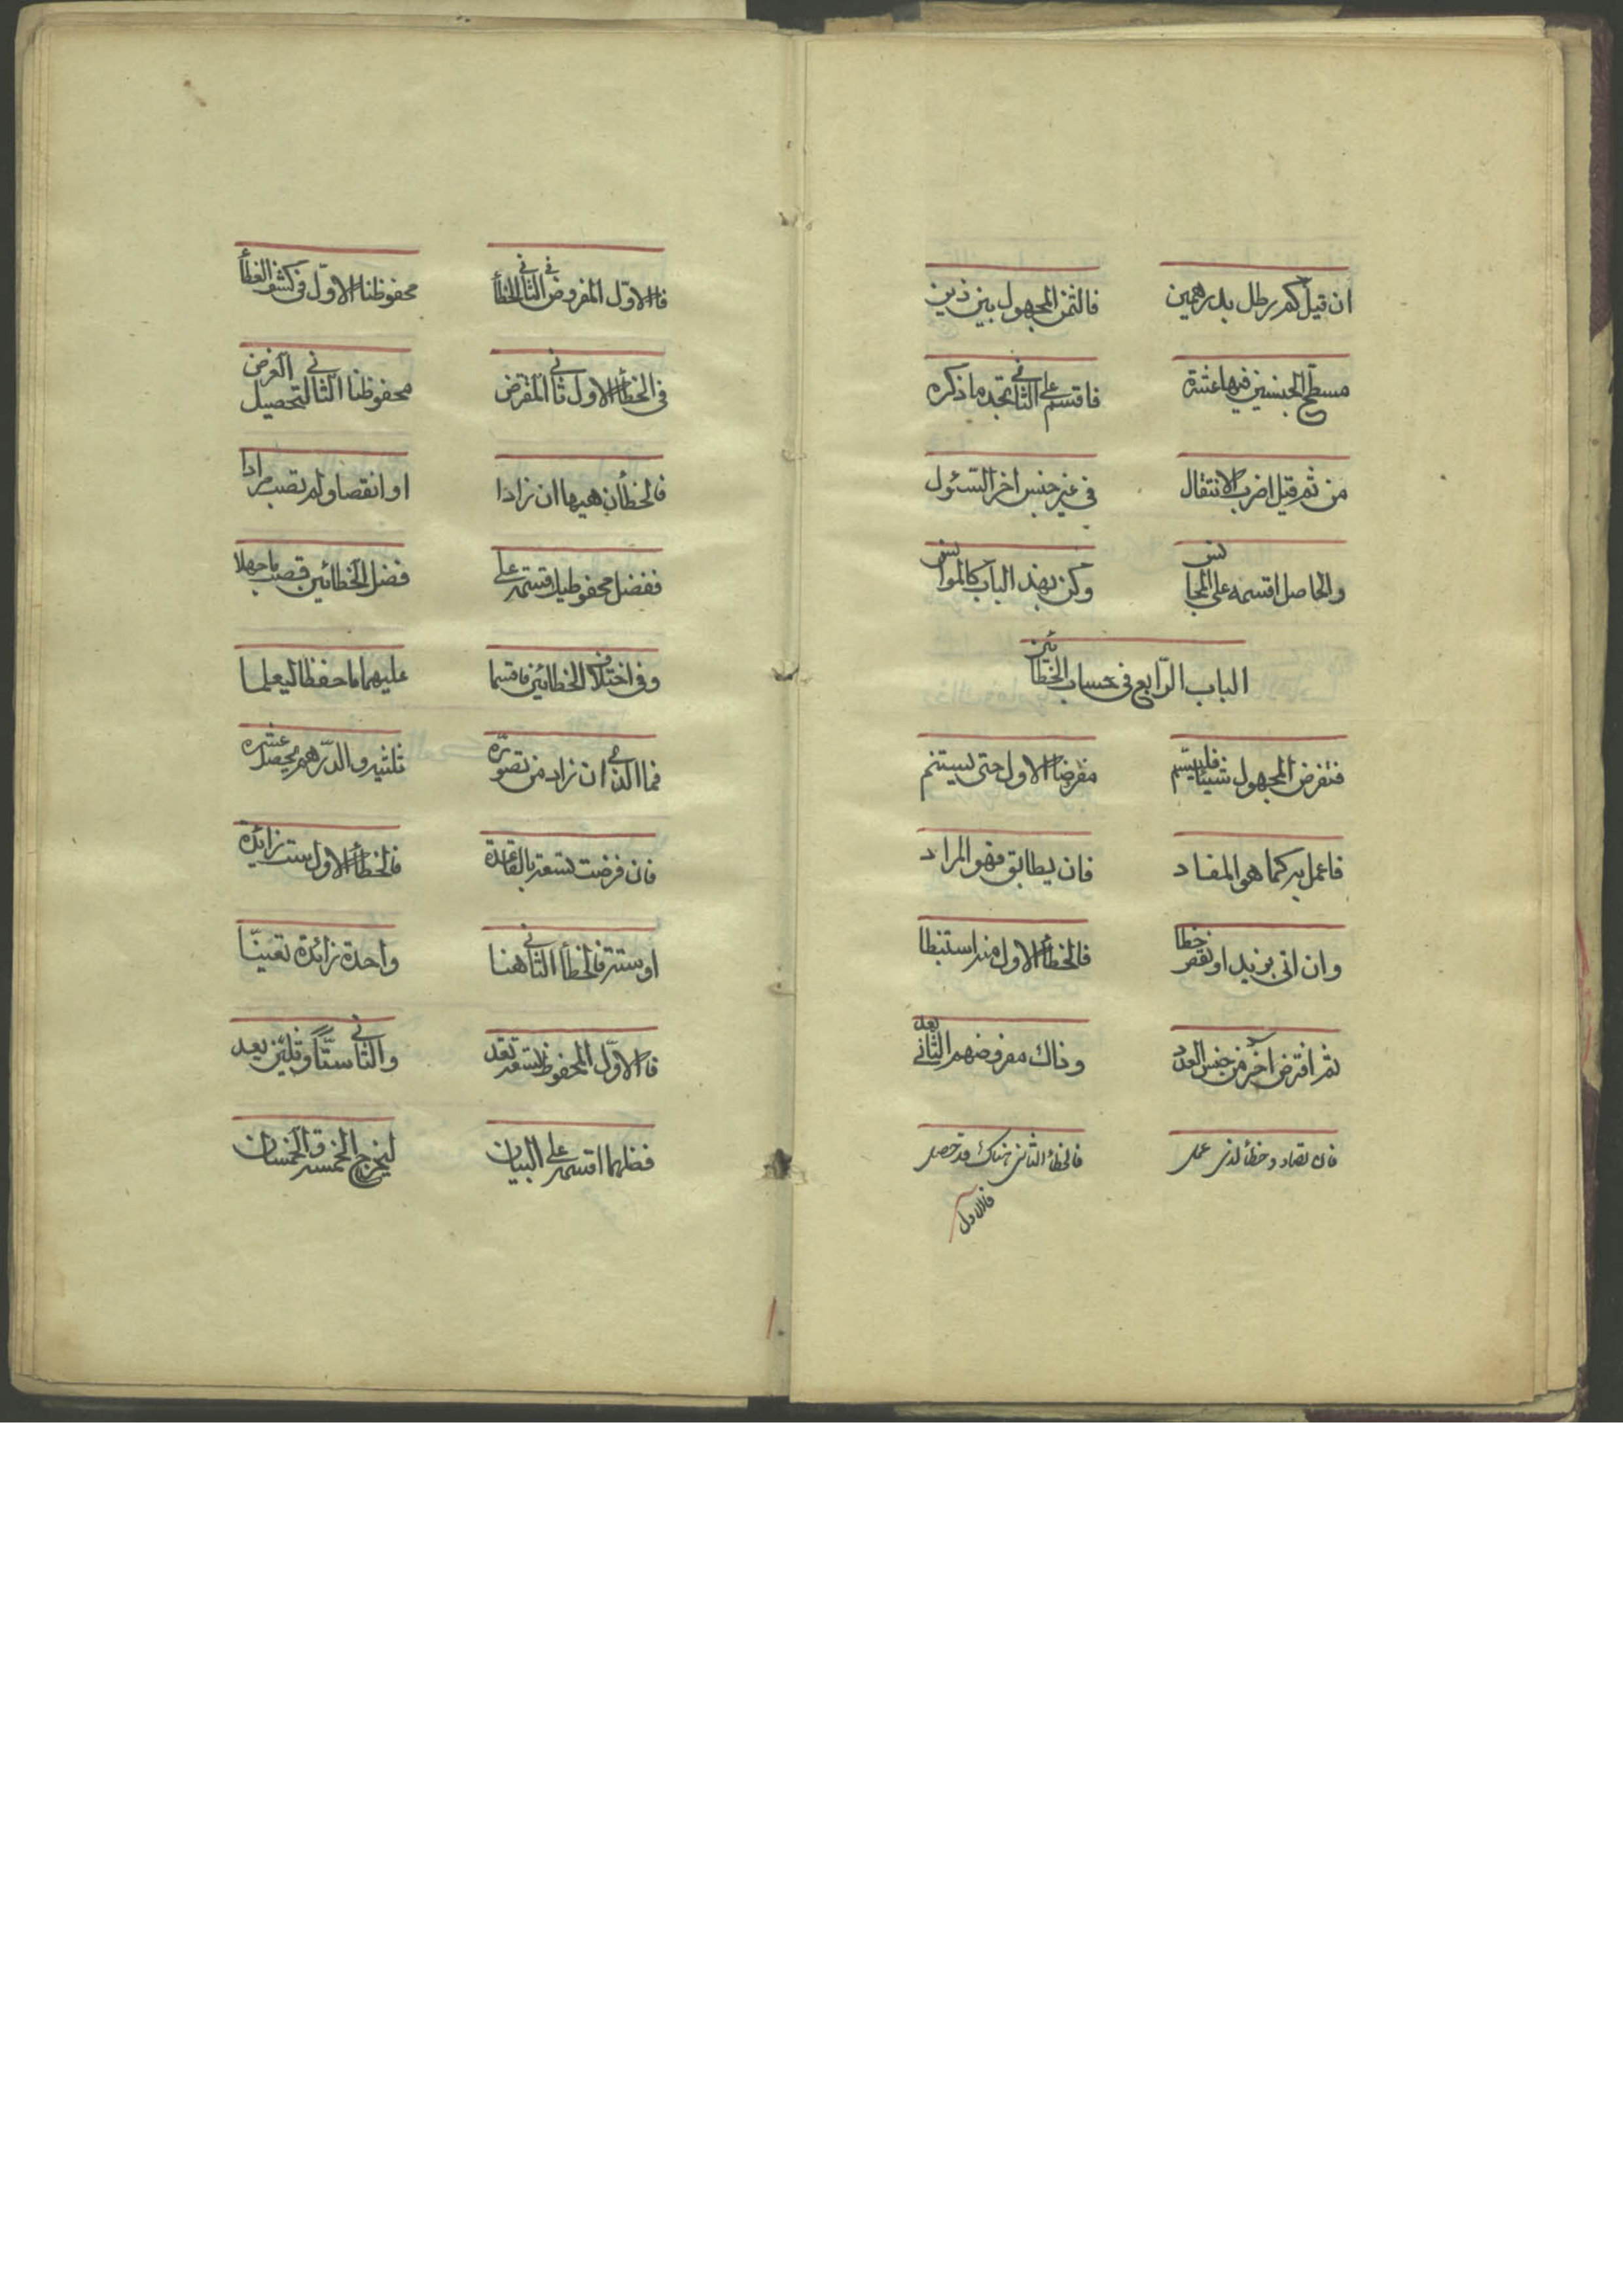 ان قيل كم رطل بدرهمين فالثمن المجهول بين ذين
مسطح الجنسين فيها عشرة فاقسم على الثاني تجد ما ذكره
من ثم قيل اضرب الانتقال في غير جنس اخر السئول
والحاصل اقسمه على المجانس وكن بهذا الباب كالموانس
الباب الرّابع في حساب الخطائين
فتفرض المجهول شيئا فليسم مفرضا الاول حتى يستتم
فاعمل به كما هو المفاد فان يطابق فهو المراد
وان اتى بزيد او نقص خطا فالخطأ الاول منه استنبطا
ثم افترض اخر من جنس العدد وذاك مفروضهم الثاني يعد
فان تضاد وخطأ لذى عمل فالخطأ الثاني هناك قد حصل
فالاول
فالاوّل المفروض في الثاني الخطأ محفوظنا الاوّل في كشف الغطأ
في الخطأ الاول ثاني المفترض محفوظنا الثاني لتحصيل الغرض
فالخطأن هيهما ان زادا او انقصا ولم تصب مرادا
ففضل محفوظيك قسمته على فضل الخطائين تصب ما جهلا
وفي اختلاف الخطائين فاقسما عليهما ما حفظا ليعلما
فما الذي ان زاد من تصوره ثلثيه والدّرهم يحصل عشره
فان فرضت تسعة بالقاعدة فالخطأ الاول ست زائدة
او ستة فالخطأ الثاني هنا واحدة زائدة تعينّا
فالاوّل المحفوظ تسعة تعد والثاني ستّاً وثلثين يعد
فضلهما اقسمه على البيان ليخرج الخمسة والخمسان